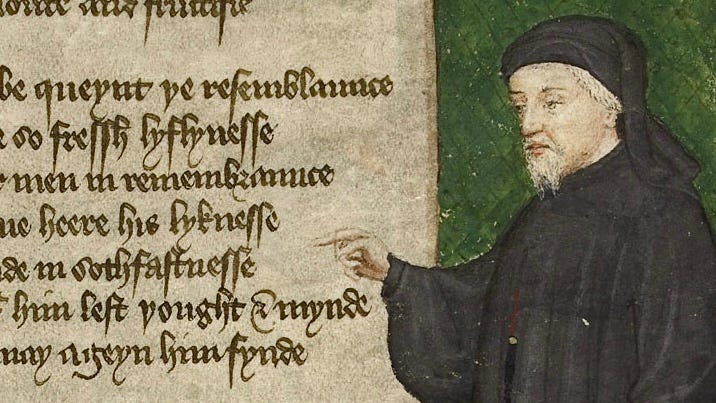 and fructifie
be queynt þe resemblaunce
e so fressh lyflynesse
r men in remembraunce
ue heere his lyknesse
de in sothfastnesse
him lest þought & mynde
may ageyn him fynde